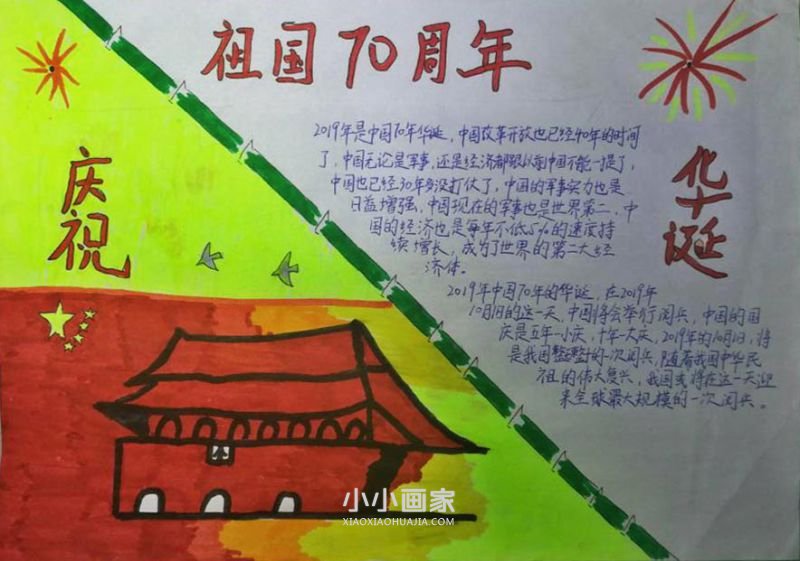 祖国70周年
庆祝
华诞
2019年是中国70年华诞，中国改革开放也已经40年的时间
了，中国无论是军事，还是经济都跟以前中国不能一提了，
中国也已经30年多没打仗了，中国的军事实力也是
日益增强，中国现在的军事也是世界第二，中
国的经济也是每年不低5%的速度持
续增长，成为了世界的第二大经
济体。
2019年中国70年的华诞，在2019年
10月1日的这一天，中国将会举行阅兵，中国的国
庆是五年一小庆，十年一大庆，2019年的10月1日，将
是我国整的一次阅兵，随着我国中华民
族的伟大复兴，我国或将在这一天迎
来全球最大规模的一次阅兵。
小小画家
XIAOXIAOHUAJIA.COM